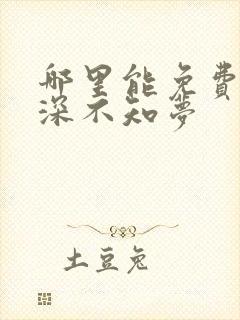 那里能免费
深不知梦
土豆兔